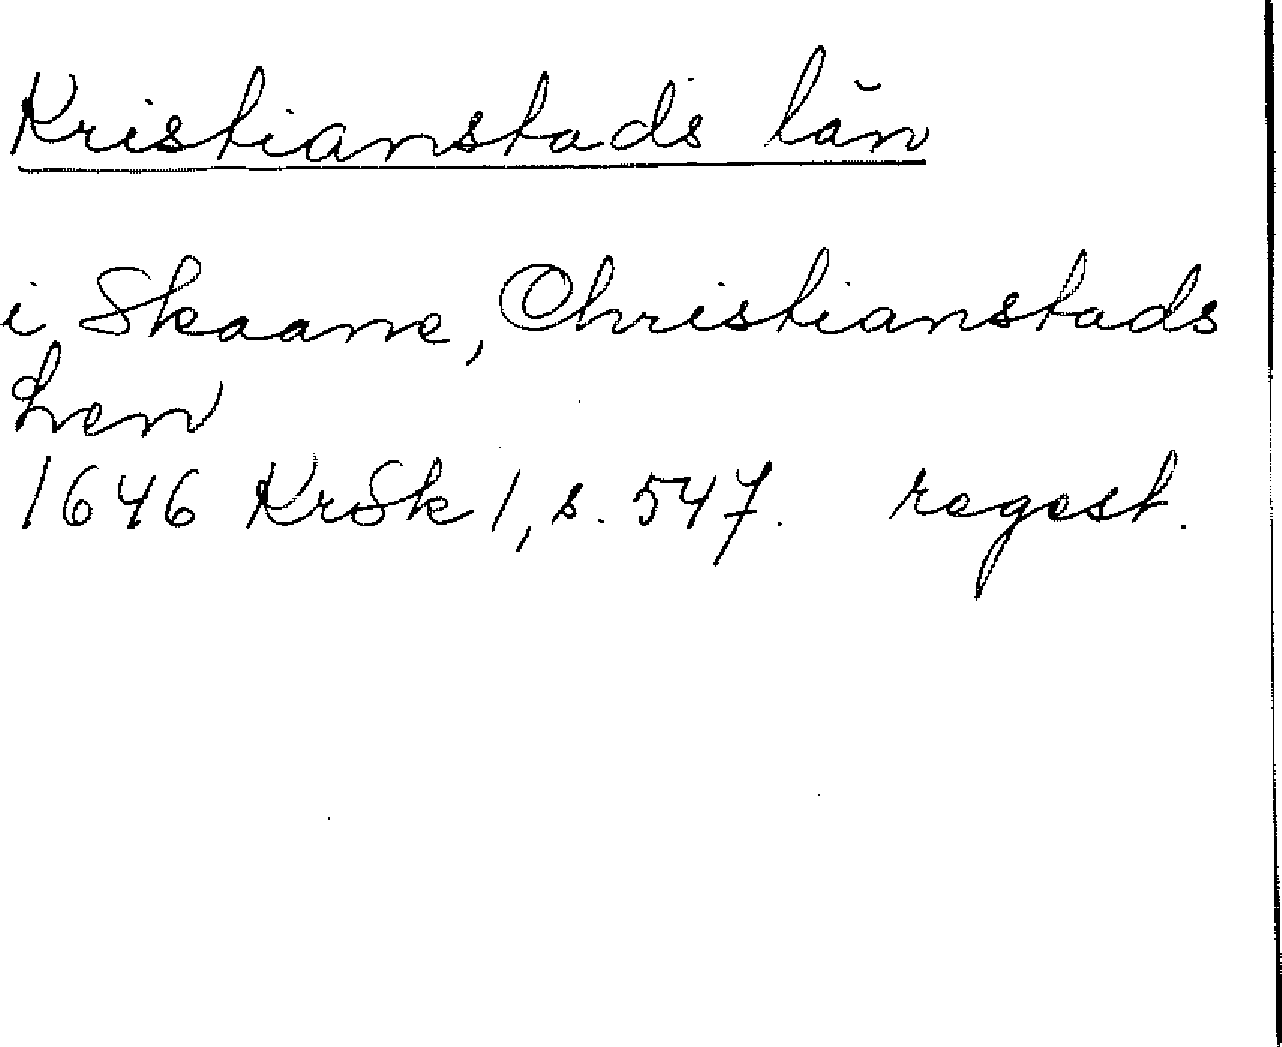 Kristianstads län
i Skaane, Christianstads
Len
1646 KrSk 1, s. 547. regest.